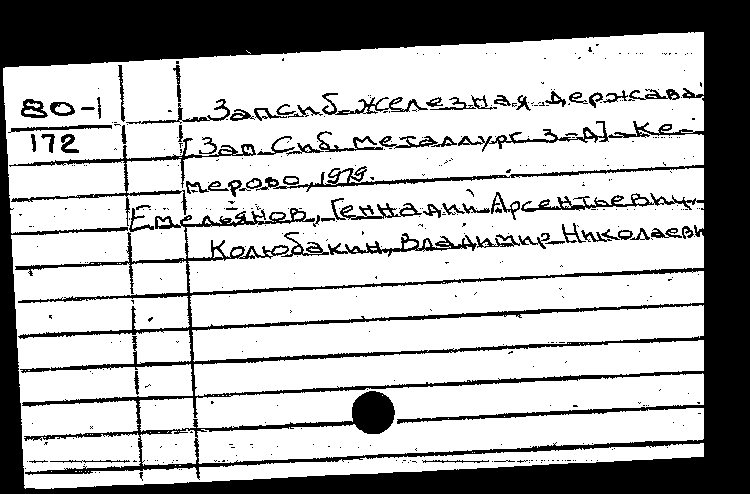 80-1
172
Запсиб-железная держава.
[Зап. Сиб. металлург. з-д]. - Ке-
мерово, 1979.
Емельянов, Геннадий Арсентьевич.
Колюбакин, Владимир Николаеви